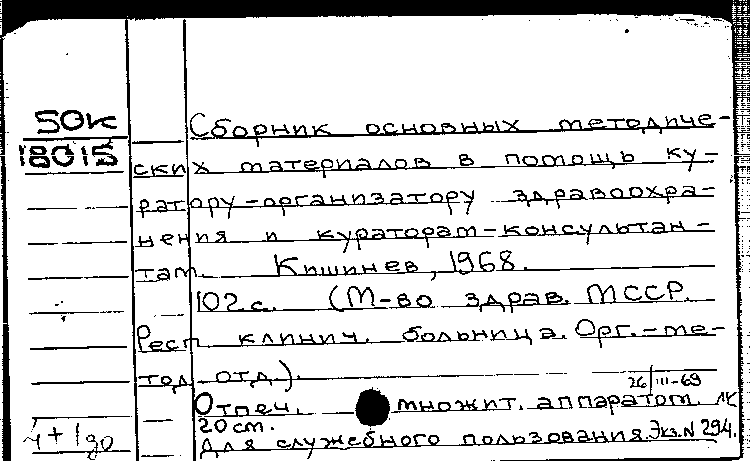 50к
18015
Сборник основных методиче-
ских материалов в помощь ку-
ратору-организатору здравоохра-
нения и кураторам-консультан-
там. Кишинев, 1968.
102 с. (М-во здрав. МССР.
Респ. клинич. больница. Орг.-ме-
тод. отд.).
26/III-69
Отпеч. множит. аппаратом.
20 см.
Для служебного пользования. Экз. N 294.